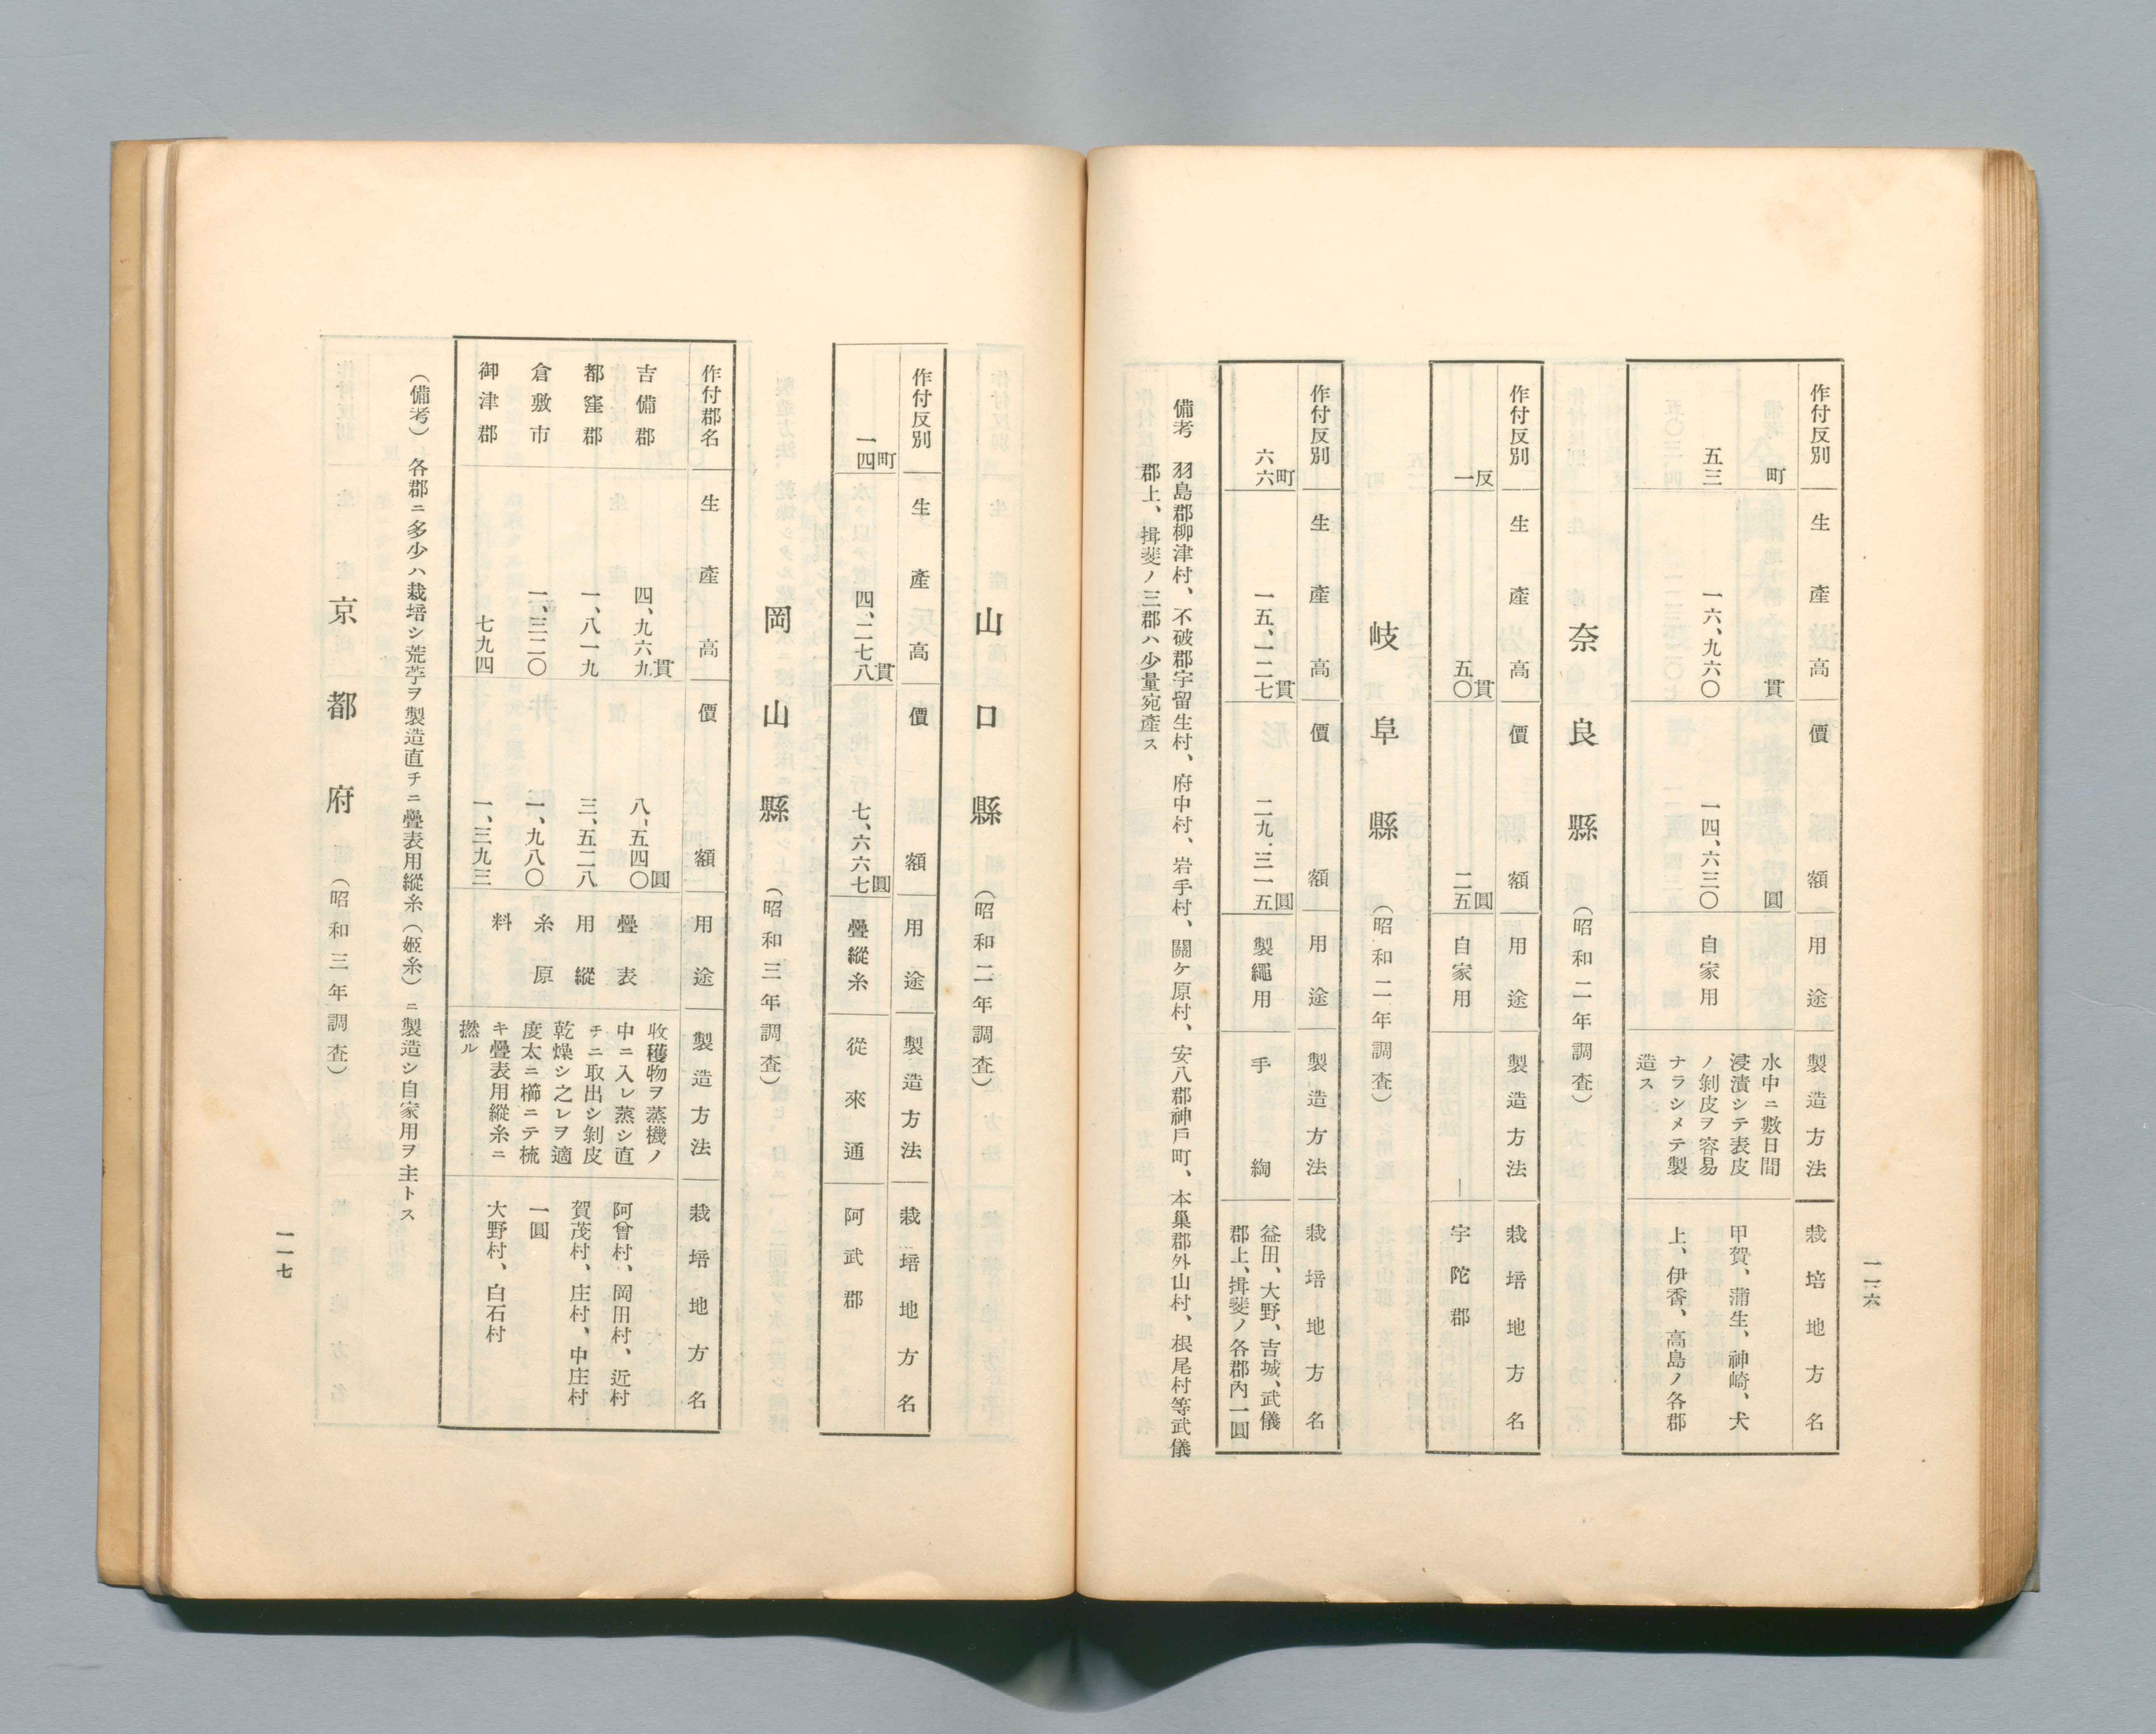 一一六
作付反別 生產高 價額 用途 製造方法 栽培地方名
町 貫 圓 水中ニ數日間
五三 一六、九六〇 一四、六三〇 自家用 浸漬シテ表皮 甲賀、蒲生、神崎、犬
ノ剝皮ヲ容易
ナラシメテ製 上、伊香、高島ノ各郡
造ス
奈良縣 （昭和二年調查）
作付反別 生產高 價額 用途 製造方法 栽培地方名
反 貫 圓
一 五〇 二五 自家用 — 宇陀郡
岐阜縣 （昭和二年調查）
作付反別 生產高 價額 用途 製造方法 栽培地方名
町 貫 圓 益田、大野、吉城、武儀
六六 一五、一二七 二九、三一五 製繩用 手綯 郡上、揖斐ノ各郡內一圓
備考 羽島郡柳津村、不破郡宇留生村、府中村、岩手村、關ケ原村、安八郡神戶町、本巢郡外山村、根尾村等武儀
郡上、揖斐ノ三郡ハ少量宛產ス
山口縣 （昭和二年調查）
作付反別 生產高 價額 用途 製造方法 栽培地方名
町 貫 圓
一四 四、二七八 七、六六七 疊縱糸 從來通 阿武郡
岡山縣 （昭和三年調查）
作付郡名 生產高 價額 用途 製造方法 栽培地方名
貫 圓 收穫物ヲ蒸機ノ
吉備郡 四、九六九 八、五四〇 疊表 中ニ入レ蒸シ直 阿曾村、岡田村、近村
都窪郡 一、八一九 三、五二八 用縱 チニ取出シ剝皮 賀茂村、庄村、中庄村
乾燥シ之レヲ適
倉敷市 一、三二〇 一、九八〇 糸原 度太ニ櫛ニテ梳 一圓
御津郡 七九四 一、三九三 料 キ疊表用縱糸ニ 大野村、白石村
撚ル
（備考）各郡ニ多少ハ栽培シ荒苧ヲ製造直チニ疊表用縱糸（姬糸）ニ製造シ自家用ヲ主トス
京都府 （昭和三年調查）
一一七